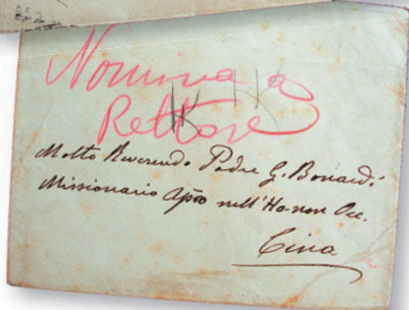 Nomina a
Rettore
Molto Reverendo Padre G. Bonardi
Missionario Apco nell'Ho-nan Occ.
Cina